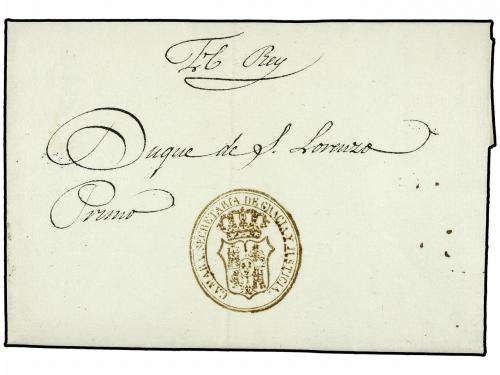 El Rey
Duque de S. Lorenzo
Primo
CAMARA, SECRETARIA DE GRACIA Y JUSTICIA.